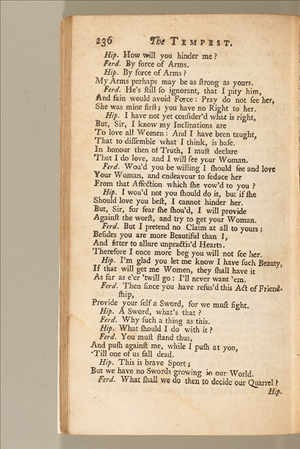 236 The TEMPEST.
Hip. How will you hinder me?
Ferd. By force of Arms.
Hip. By force of Arms?
My Arms perhaps may be as ſtrong as yours.
Ferd. He's ſtill ſo ignorant, that I pity him,
And fain would avoid Force: Pray do not ſee her,
She was mine firſt; you have no Right to her.
Hip. I have not yet conſider'd what is right,
But, Sir, I know my Inclinations are
To love all Women: And I have been taught,
That to diſſemble what I think, is baſe.
In honour then of Truth, I muſt declare
That I do love, and I will ſee your Woman.
Ferd. Wou'd you be willing I ſhould ſee and love
Your Woman, and endeavour to ſeduce her
From that Affection which ſhe vow'd to you?
Hip. I wou'd not you ſhould do it, but if ſhe
Should love you beſt, I cannot hinder her.
But, Sir, for fear ſhe ſhou'd, I will provide
Againſt the worſt, and try to get your Woman.
Ferd. But I pretend no Claim at all to yours;
Beſides you are more Beautiful than I,
And fitter to allure unpractis'd Hearts.
Therefore I once more beg you will not ſee her.
Hip. I'm glad you let me know I have ſuch Beauty,
If that will get me Women, they ſhall have it
As far as e'er 'twill go: I'll never want 'em.
Ferd. Then ſince you have refus'd this Act of Friend-
ſhip,
Provide your ſelf a Sword, for we muſt fight.
Hip. A Sword, what's that?
Ferd. Why ſuch a thing as this.
Hip. What ſhould I do with it?
Ferd. You muſt ſtand thus,
And puſh againſt me, while I puſh at you,
'Till one of us fall dead.
Hip. This is brave Sport;
But we have no Swords growing in our World.
Ferd. What ſhall we do then to decide our Quarrel?
Hip.